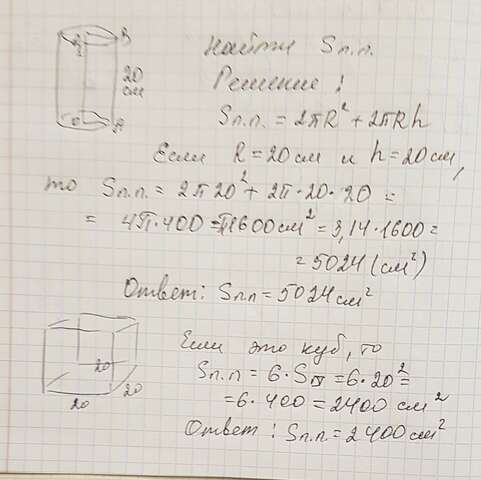 B
20
см
O
A
Найти Sп.п.
Решение:
Sп.п. = 2πR² + 2πRh
Если R = 20 см и h = 20 см,
то Sп.п. = 2π20² + 2π·20·20 =
= 4π·400 = π1600 см² = 3,14·1600 =
= 5024 (см²)
Ответ: Sп.п = 5024 см²
20
20
20
Если это куб, то
Sп.п = 6·S = 6·20² =
= 6·400 = 2400 см²
Ответ: Sп.п. = 2400 см²